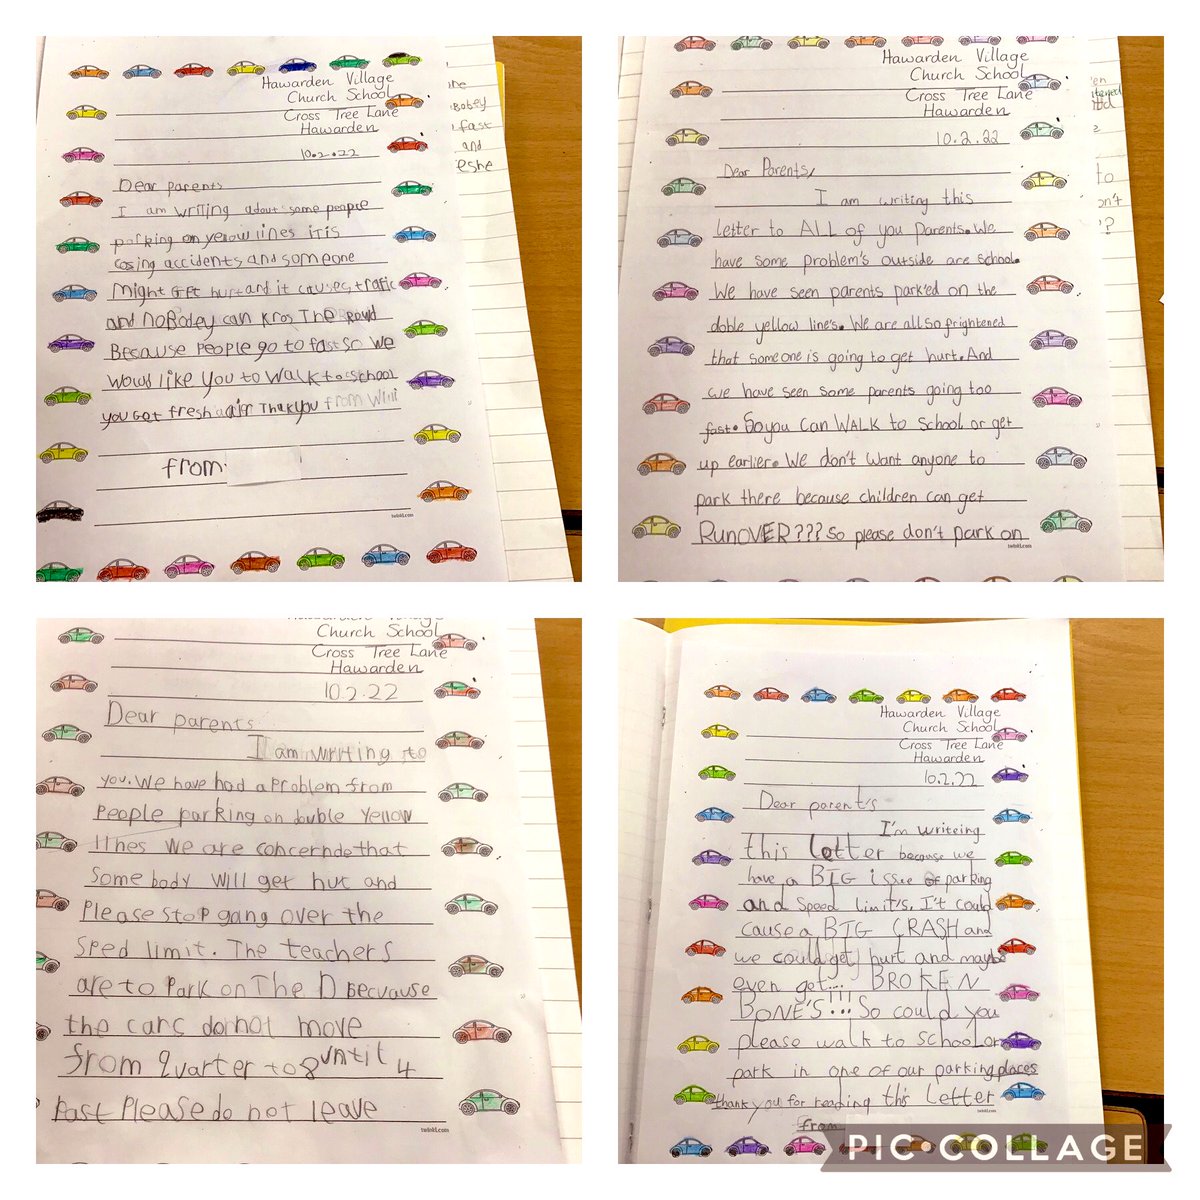 Hawarden Village
Church School
Cross Tree Lane
Hawarden
10.2.22
Dear parents
I am writing about some people
parking on yellow lines it is
cosing accidents and someone
might Get hurt and it causes trafic
and noBodey can kros The
Because People go to fast so we
Would like you to walk to school
you Get fresh Thankyou from Will
from
twinkl.com
Bobey
fast
and
Hawarden Village
Church School
Cross Tree Lane
Hawarden
10.2.22
Dear Parents,
I am writing this
letter to ALL of you Parents. We
have some problem's outside are school.
We have seen parents park'ed on the
doble yellow line's. We are all so frightened
that someone is going to get hurt. And
we have seen some parents going too
fast. So you can WALK to school or get
up earlier. We don't want anyone to
park there because children can get
RunoVER??? So please don't park on
twinkl.com
Hawarden Village
Church School
Cross Tree Lane
Hawarden
10.2.22
Dear parents
I am writing to
you. We have had a problem from
People parking on double yellow
lines we are concernde that
Some body will get hut and
Please stop gang over the
sped limit. The teachers
are to Park on The D
the cars do not move
from quarter to 8 until 4
Past Please do not leave
twinkl.com
Hawarden Village
Church School
Cross Tree Lane
Hawarden
10.2.22
Dear parent's
I'm writeing
this letter because we
have a BIG issue of parking
and speed limit's. I't could
cause a BIG CRASH and
we could get hurt and maybe
even get... BROKEN
BONE'S!!! So could you
please walk to school or
park in one of our parking places
thank you for reading this Letter
twinkl.com
from
PIC•COLLAGE